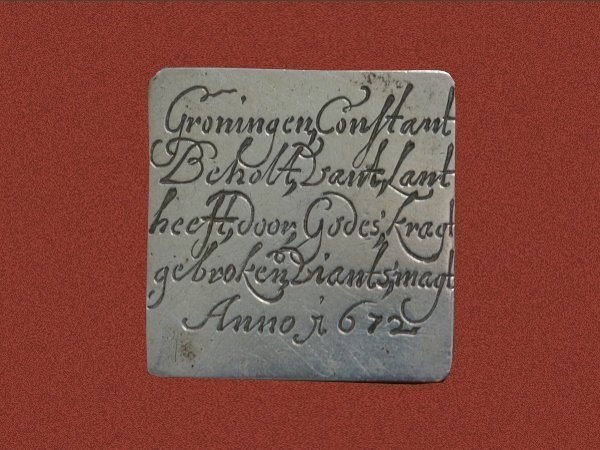 Groningen, Constant
Beholt, vant, Lant
heeft, door, Godes, kragt
gebroken, viants, magt
Anno 1672